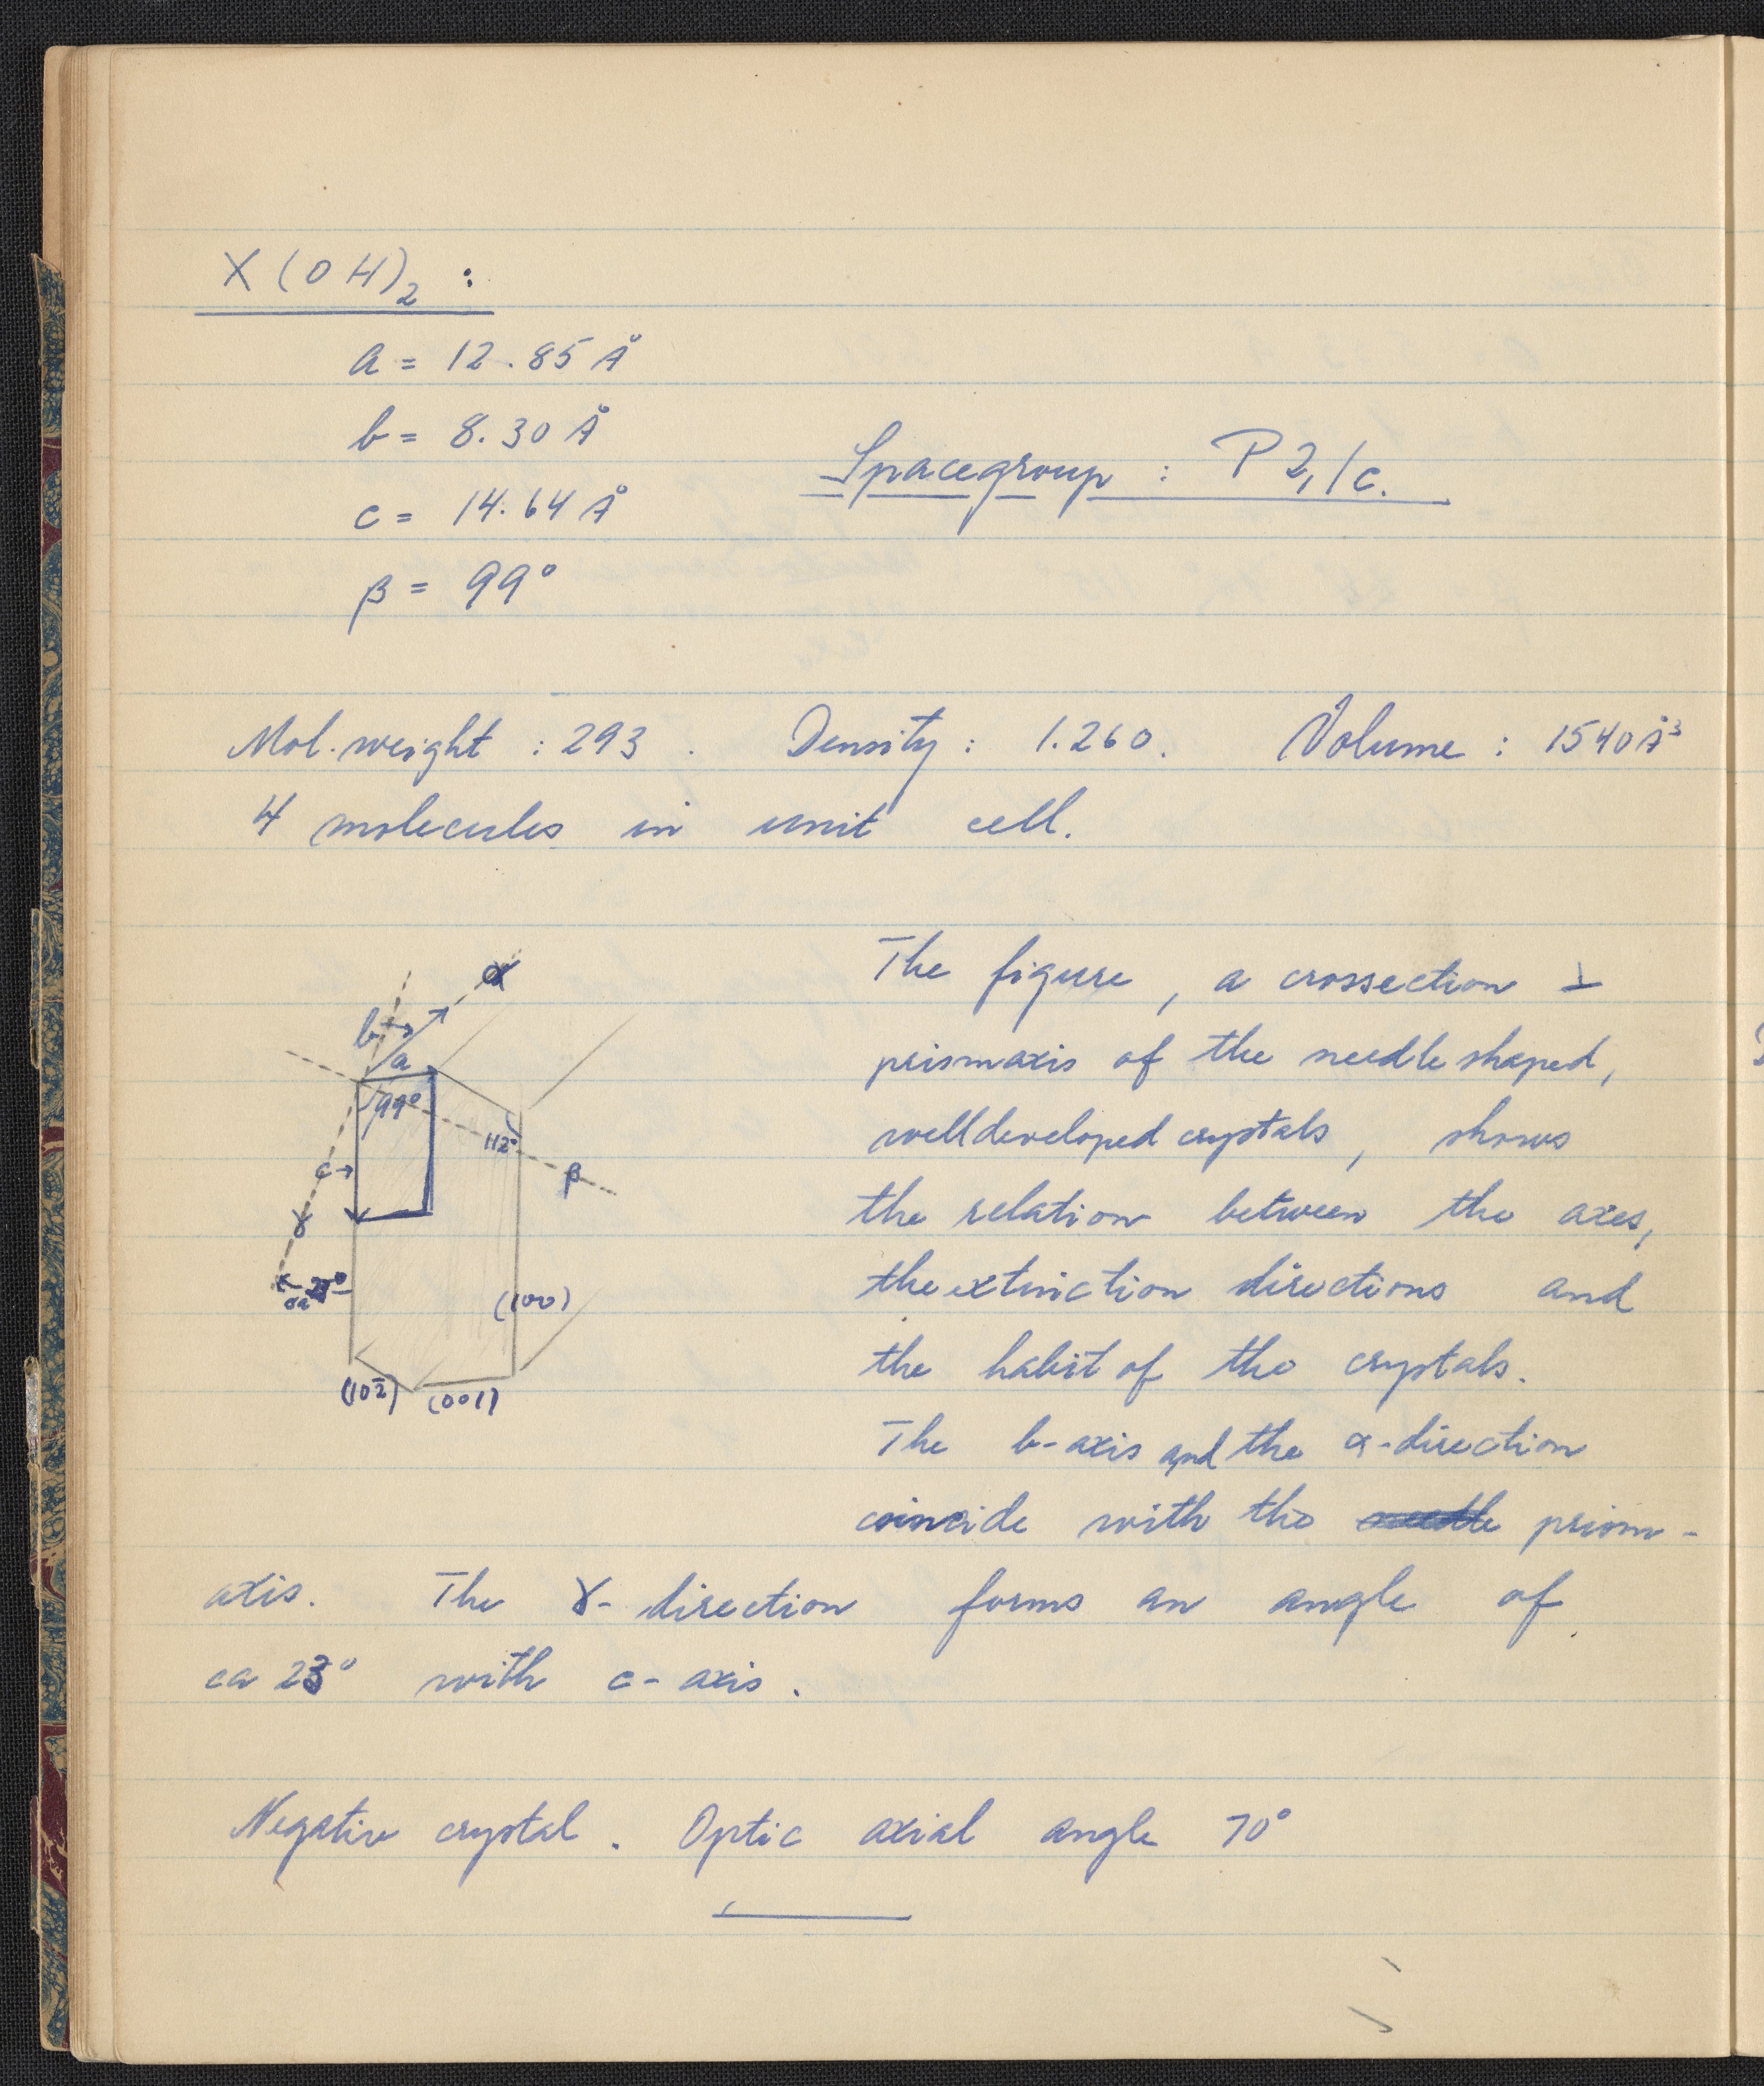 X(OH)₂ :
a = 12.85 Å
b = 8.30 Å
Spacegroup : P2₁/c.
c = 14.64 Å
β = 99°
Mol. weight : 293 . Density : 1.260. Volume : 1540 Å³
4 molecules in unit cell.
α
b
a
99°
112°
c
β
γ
ca
(100)
(102̄) (001)
The figure, a crossection ⊥
prismaxis of the needleshaped,
welldeveloped crystals, shows
the relation between the axes,
the extinction directions and
the habit of the crystals.
The b-axis and the α-direction
coincide with the prism-
axis. The γ-direction forms an angle of
ca 23° with c-axis.
Negativ crystal. Optic axial angle 70°